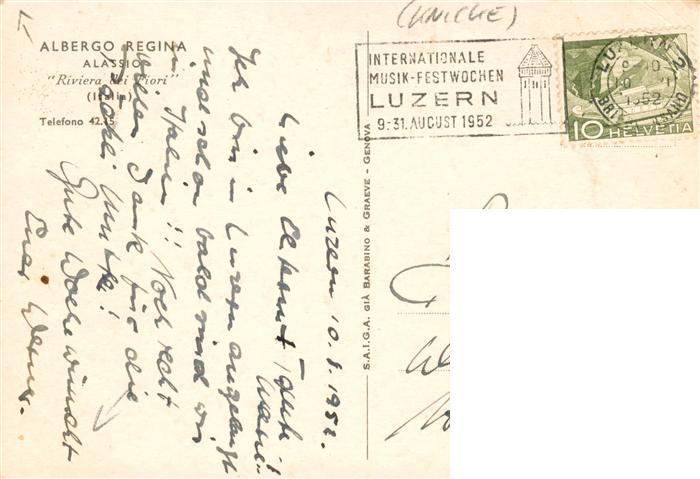 (KNICKE)
ALBERGO REGINA
ALASSIO
"Riviera dei Fiori"
(Italia)
Telefono 42.15
INTERNATIONALE
MUSIK-FESTWOCHEN
LUZERN
9.-31. AUGUST 1952
LUZERN 2
1952
10 HELVETIA
S.A.I.G.A. GIÀ BARABINO & GRAEVE - GENOVA
Luzern 10.8.1952.
Liebe
Ich bin in Luzern angelangt
und schon bald sind wir
in Italien!! Noch recht
vielen Dank für die
Gute Woche wünscht
Euer Werner.